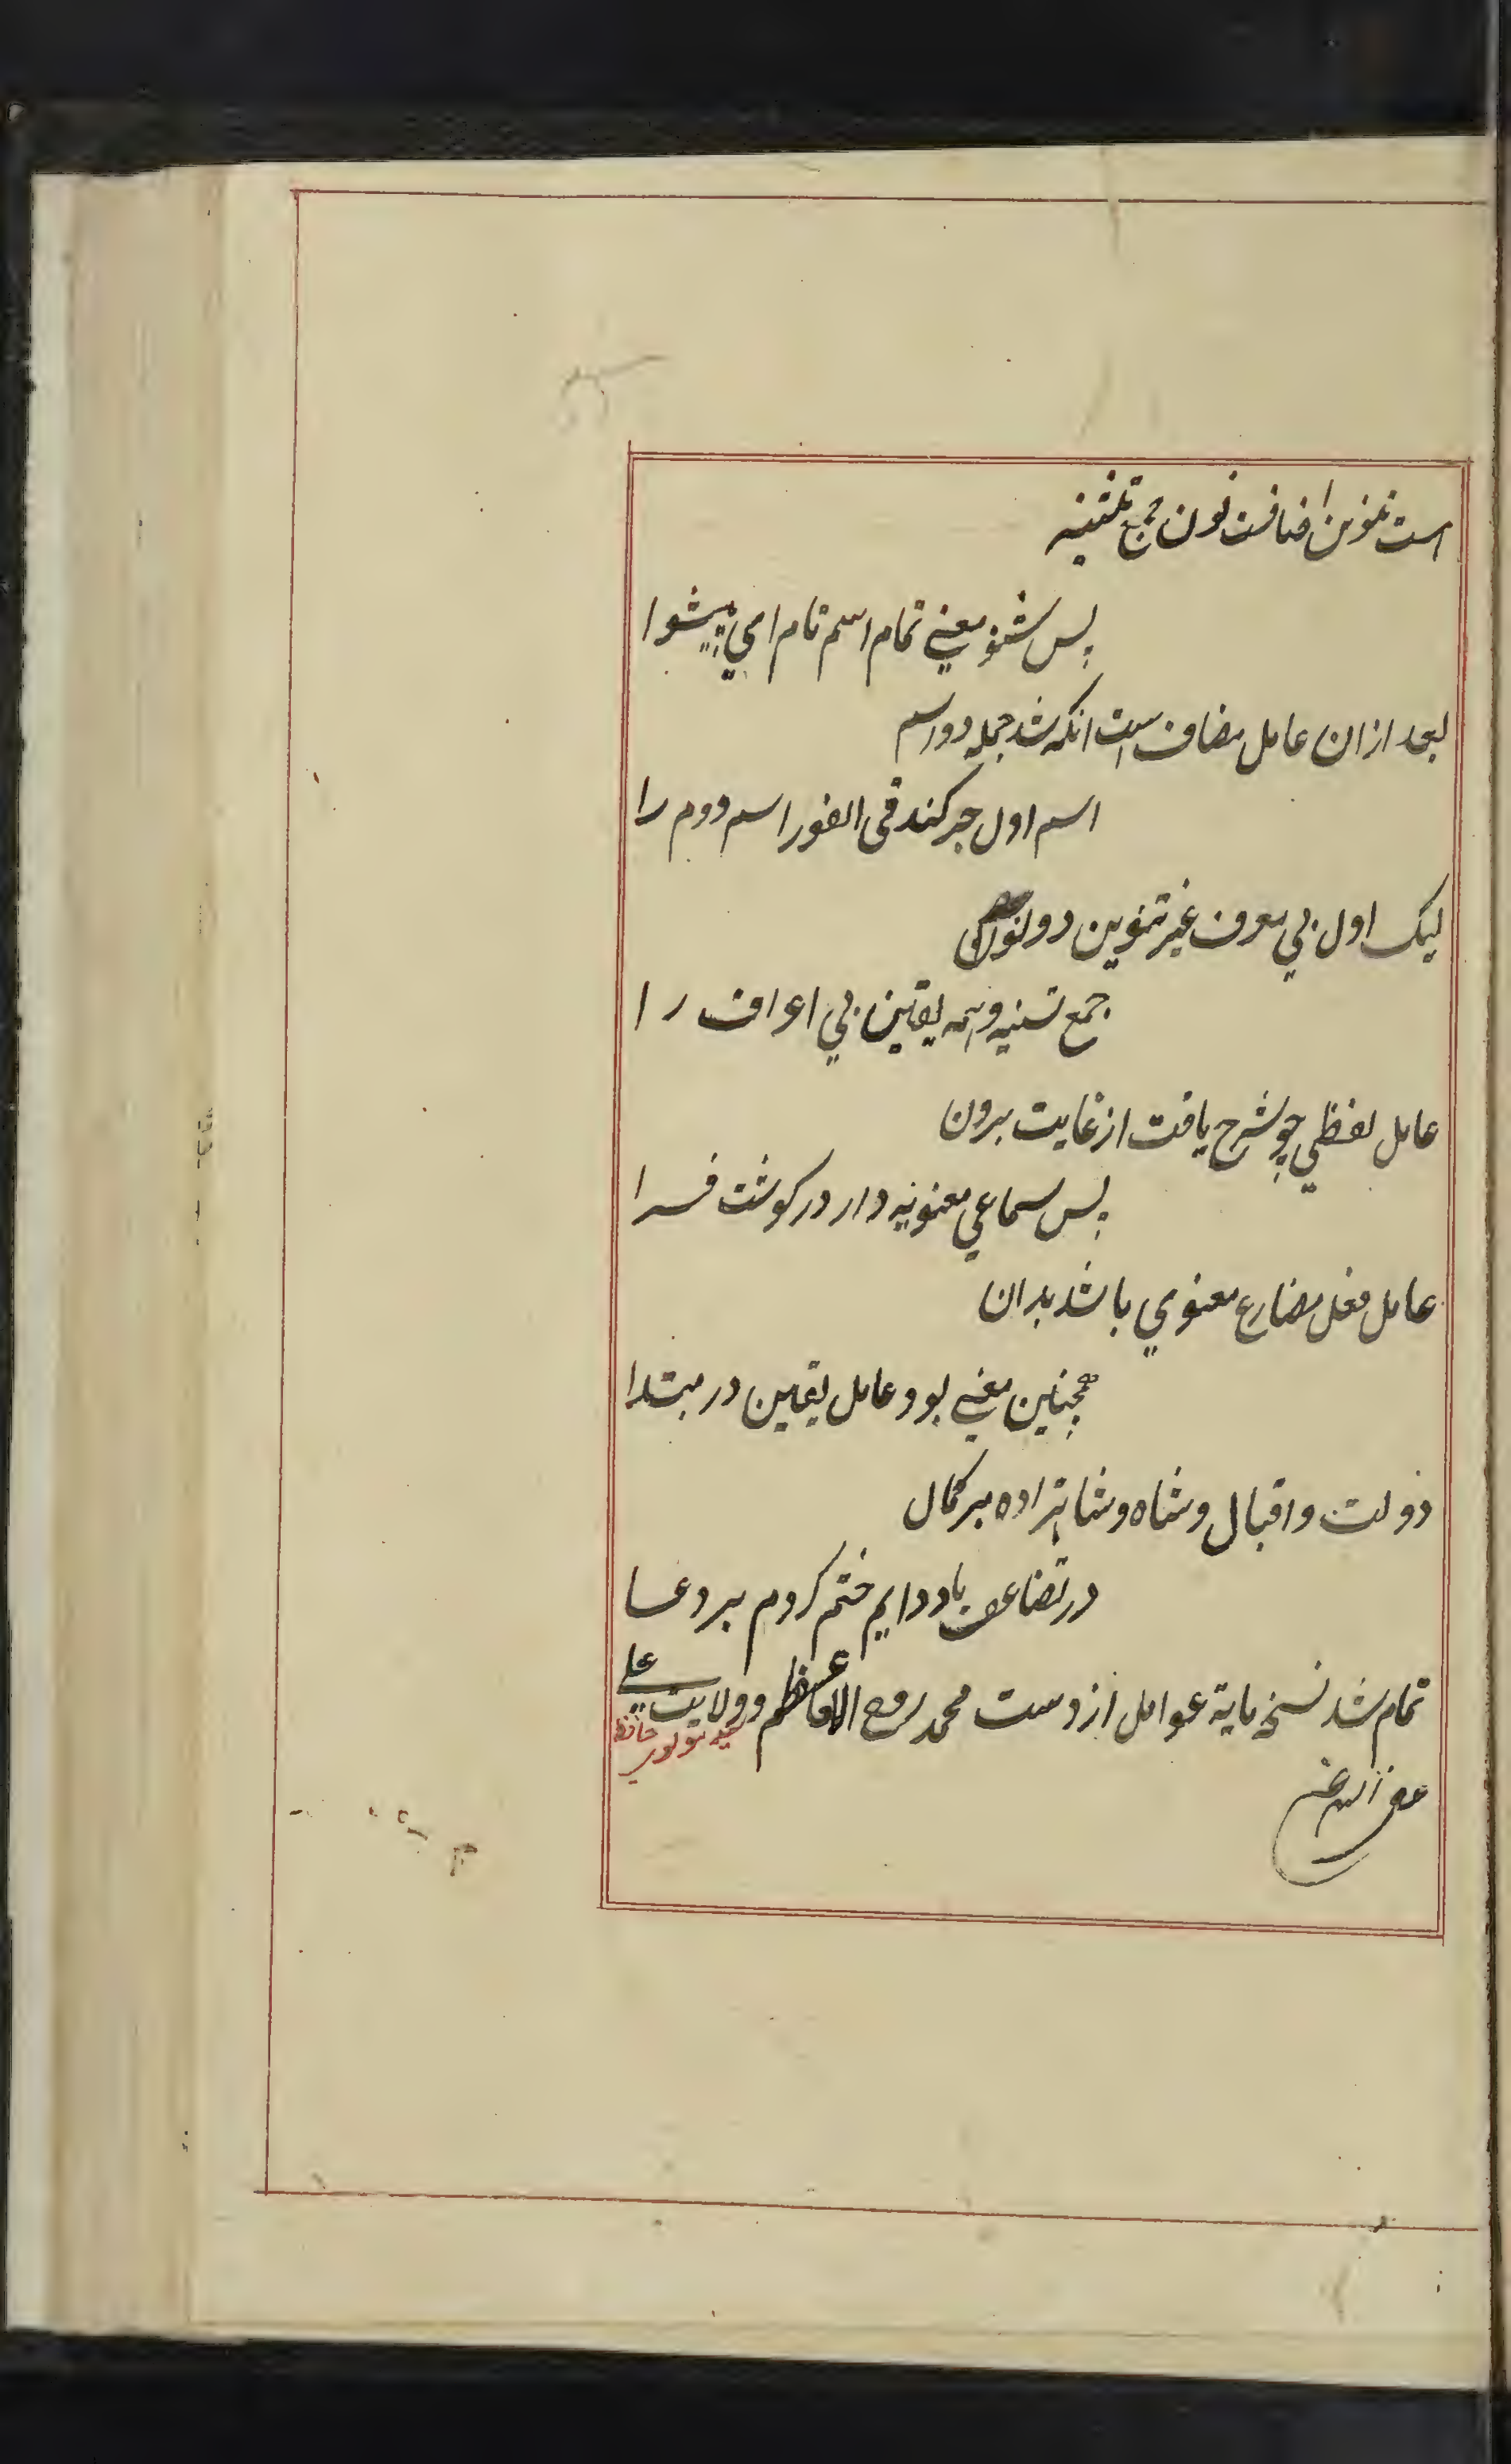 است تنوین اضافت نون جمع تثنیه
پس شنو معنی تمام اسم تام ای پیشوا
بعد ازان عامل مضاف است انکه شد جمله دو اسم
اسم اول جر کند فی الفور اسم دوم را
لیک اول بی معرف غیر تنوین دو نون
جمع تسنیه و همه یقین بی اعراف را
عامل لفظی چو شرح یافت از غایت برون
پس سماعی معنویه دار در کوشت فرا
عامل فعل مضارع معنوی باشد بدان
همچنین معنی بود عامل یقین در مبتدا
دولت و اقبال و شاه و شاهزاده بر کمال
در تضاعف باد دایم ختم کردم بر دعا
تمام شد نسخه مایة عوامل از دست محمد روح الاعظم و ولایت علی
حافظ
عفی الله عنه